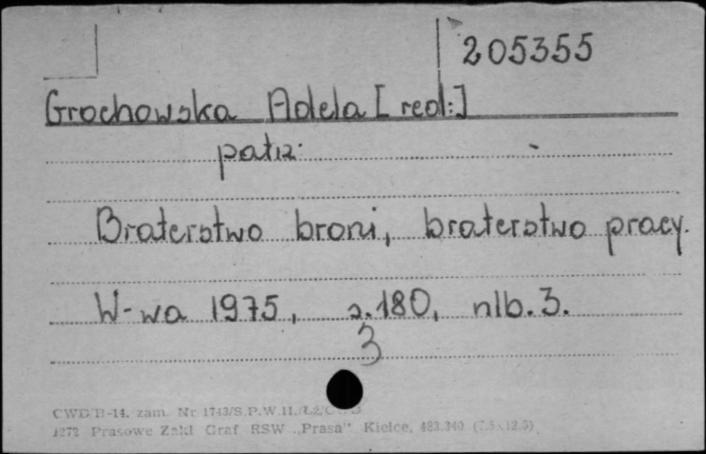 205355
Grochowska Adela [red:]
patrz:
Braterstwo broni, braterstwo pracy.
W-wa 1975, s.180, nlb.3.
3
CWD/B-14. zam. Nr 1743/S.P.W.II.
1272 Prasowe Zakł Graf RSW „Prasa" Kielce, 483.340 (7.5×12.5)